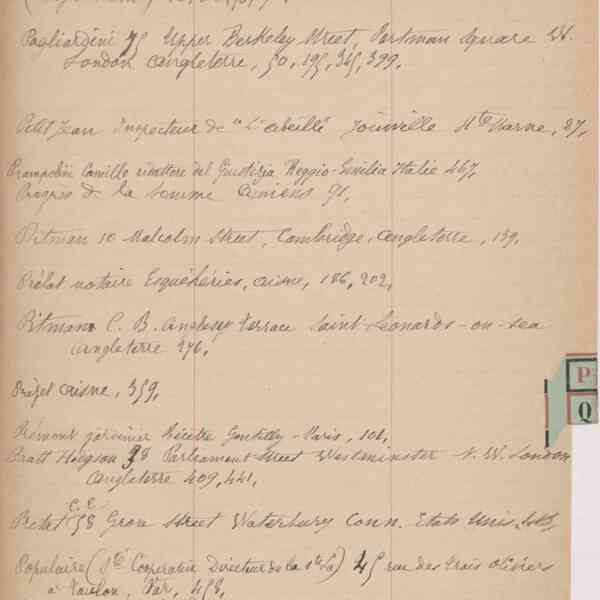 Pagliardini 75 Upper Berkeley Street, Portman Square W.
London Angleterre, 50, 195, 345, 399,
Petit Jean Inspecteur de "L'abeille" Joinville Hte Marne, 27,
Prampolini Camillo redattore del Giustizia Reggio-Emilia Italie 467,
Progrès de la Somme Amiens 91,
Pitman 10 Malcolm Street, Cambridge, Angleterre, 139,
Prélat notaire Esquéhéries, Aisne, 186, 202,
Pitman C. B. Anglesey Terrace Saint-Leonards-on-sea
Angleterre 276,
Aisne, 359,
Prémont jardinier Bicêtre Gentilly-Paris, 101,
Pratt Hodgson 38 Parliament Street Westminster N. W. London
Angleterre 409, 441,
C. E.
58 Grove Street Waterbury Conn. Etats Unis,
Populaire (Sté Coopérative Directeur de la Sté La) 45 rue des Trois Oliviers
à Toulon, Var, 458,
P
Q